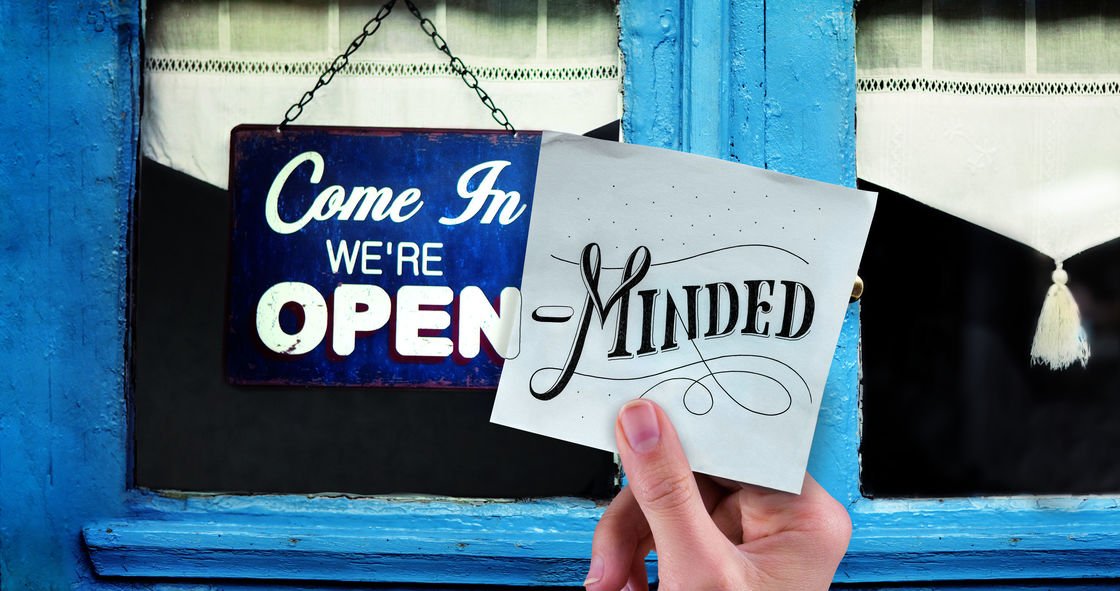 Come In
WE'RE
OPEN-MINDED